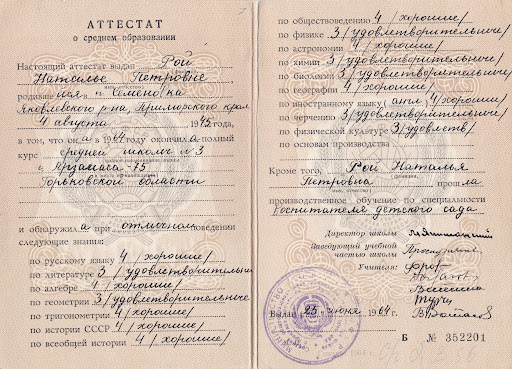 АТТЕСТАТ
о среднем образовании
Настоящий аттестат выдан Рой
Наталье Петровне
родившейся в с. Семеновка
Яковлевского р-на, Приморского края
4 августа 1945 года,
в том, что она в 1964 году окончила полный
курс средней школы №3
г. Арзамаса-75
Горьковской области
и обнаружила при отличном поведении
следующие знания:
по русскому языку 4 /хорошие/
по литературе 3 /удовлетворительные
по алгебре 4 /хорошие/
по геометрии 3 /удовлетворительные
по тригонометрии 4 /хорошие/
по истории СССР 4 /хорошие/
по всеобщей истории 4 /хорошие/
по обществоведению 4 /хорошие/
по физике 3 /удовлетворительные/
по астрономии 4 /хорошие/
по химии 3 /удовлетворительные/
по биологии 3 /удовлетворительные/
по географии 4 /хорошие/
по иностранному языку (англ) 4 /хорошие/
по черчению 3 /удовлетворительные/
по физической культуре 3 /удовлетв/
по основам производства
Кроме того, Рой Наталья
Петровна прошла
производственное обучение по специальности
Воспитателя детского сада
Директор школы
Заведующий учебной
частью школы
Учителя:
Выдан 25 июня 1964 г.
Б № 352201